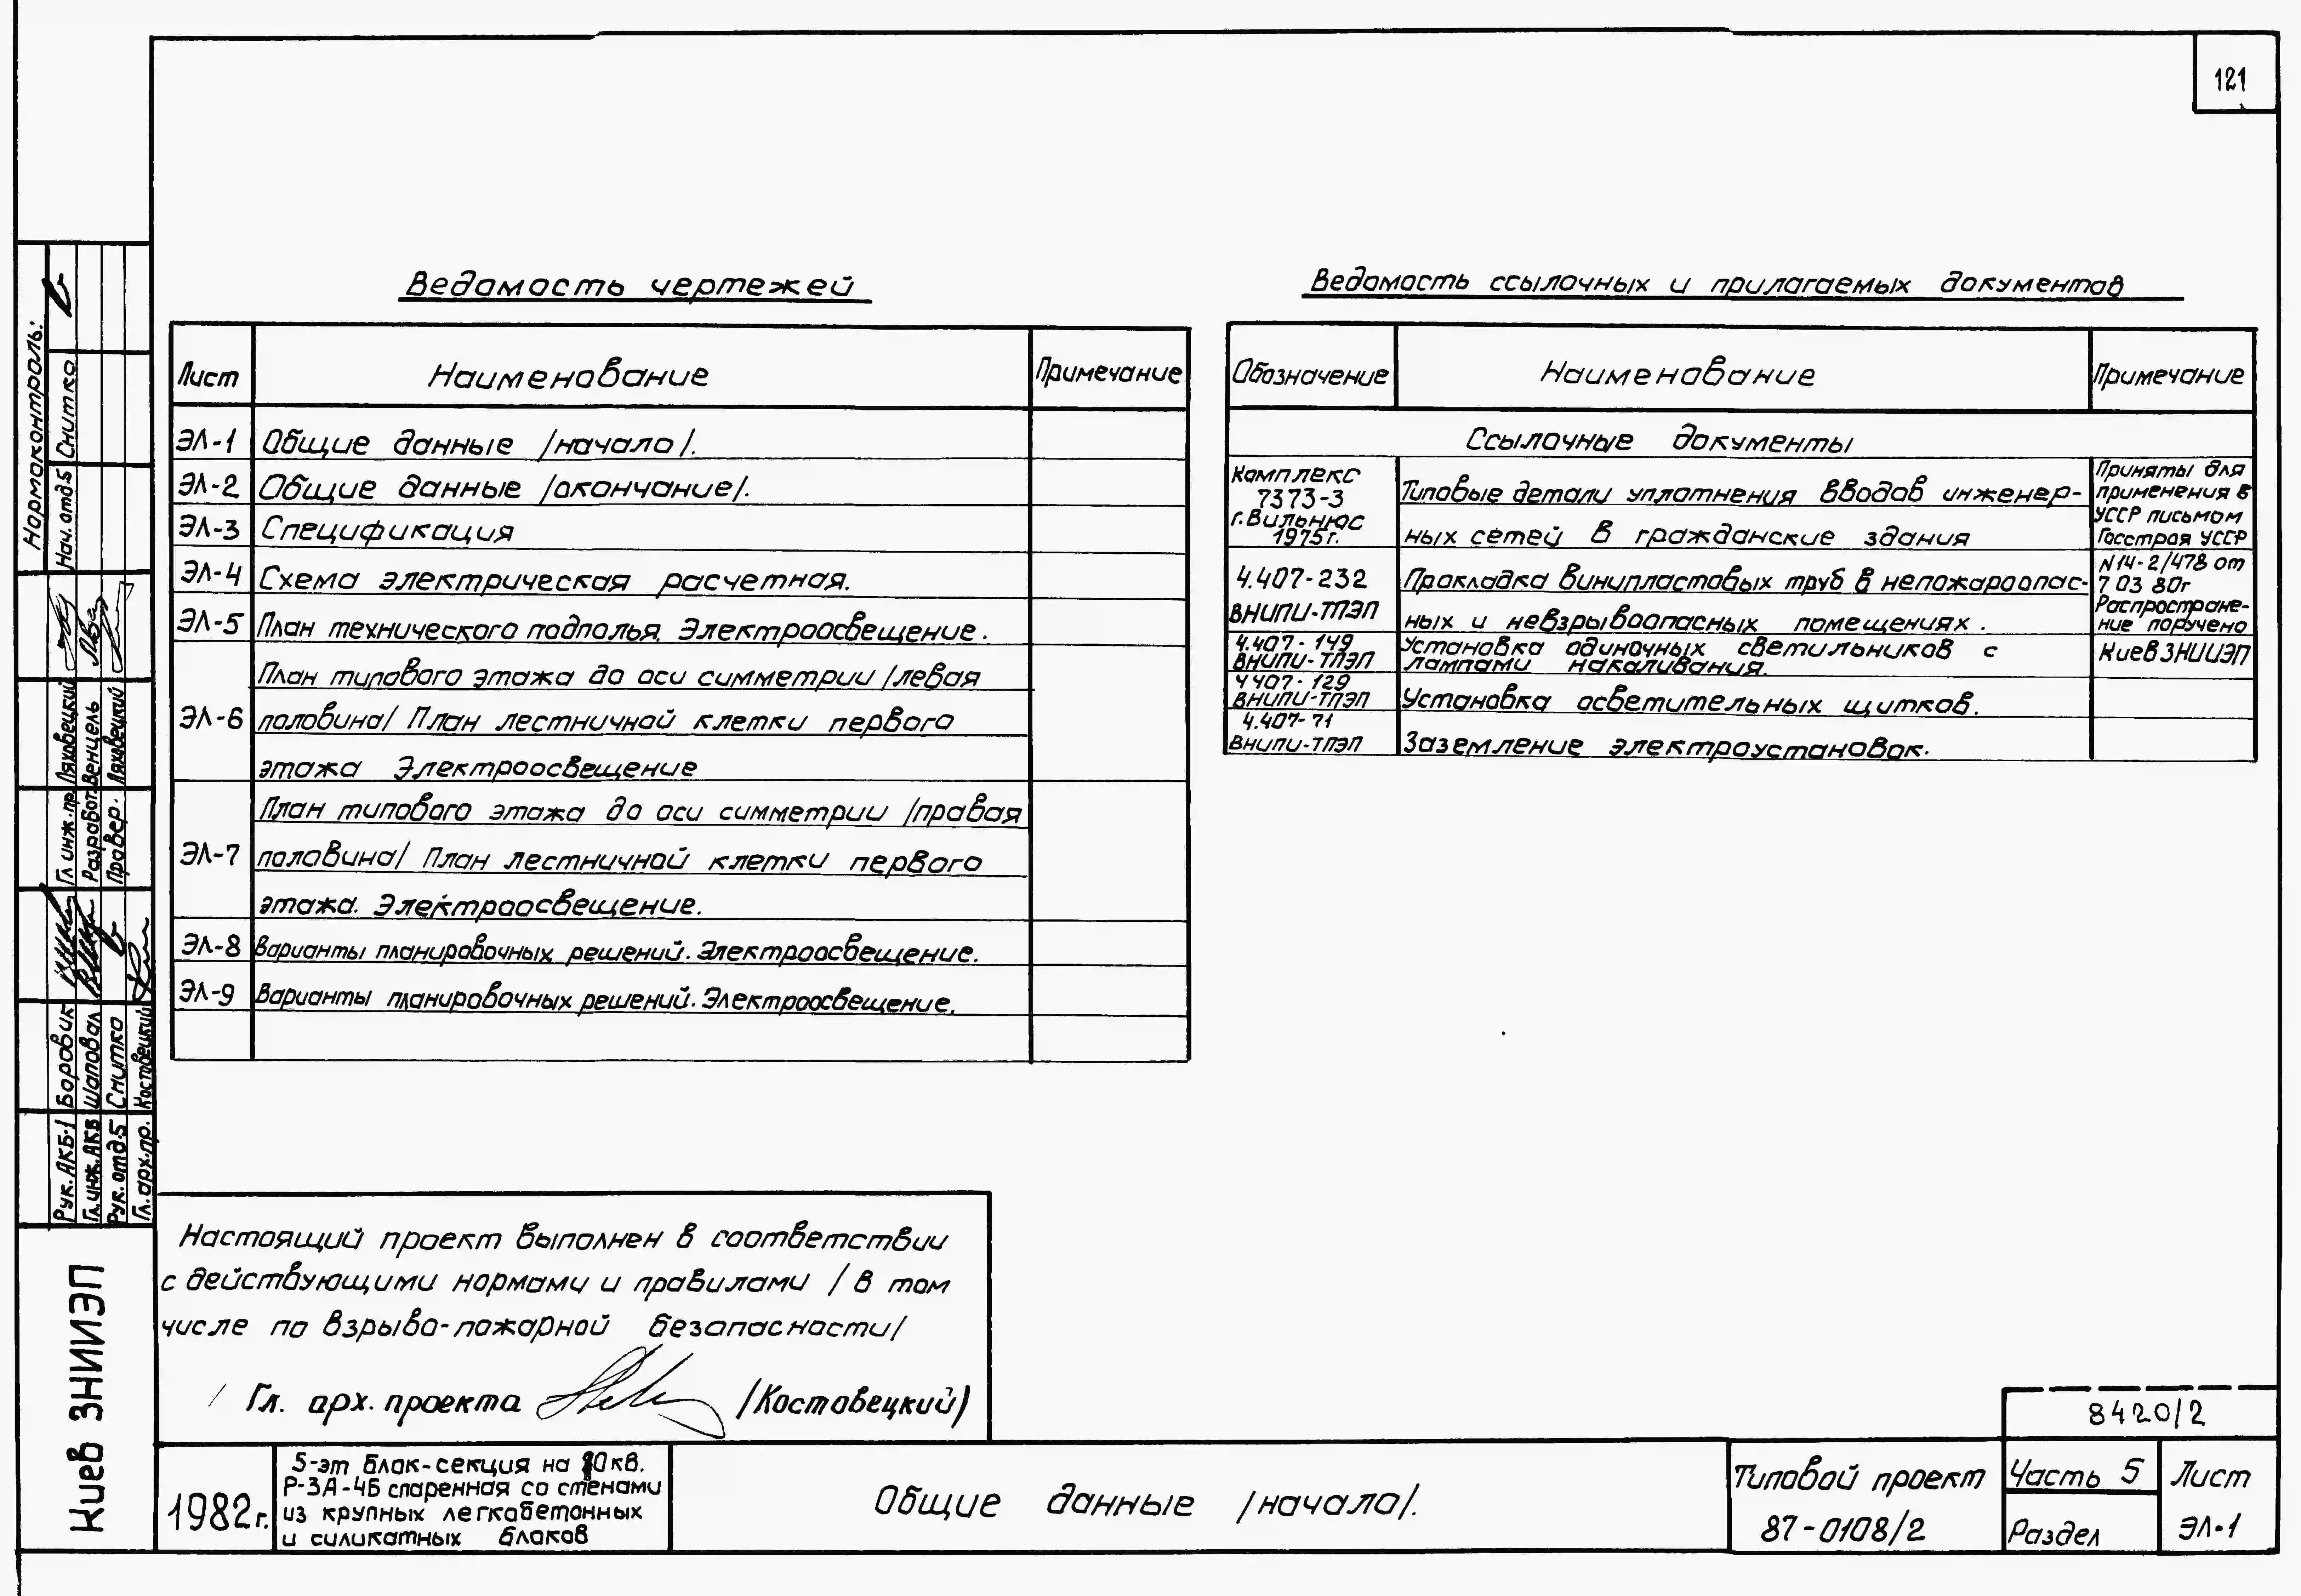 121
Ведомость чертежей
Лист Наименование Примечание
ЭЛ-1 Общие данные /начало/.
ЭЛ-2 Общие данные /окончание/.
ЭЛ-3 Спецификация
ЭЛ-4 Схема электрическая расчетная.
ЭЛ-5 План технического подполья. Электроосвещение.
План типового этажа до оси симметрии /левая
ЭЛ-6 половина/ План лестничной клетки первого
этажа Электроосвещение
План типового этажа до оси симметрии /правая
ЭЛ-7 половина/ План лестничной клетки первого
этажа. Электроосвещение.
ЭЛ-8 Варианты планировочных решений. Электроосвещение.
ЭЛ-9 Варианты планировочных решений. Электроосвещение.
Ведомость ссылочных и прилагаемых документов
Обозначение Наименование Примечание
Ссылочные документы
Комплекс
7373-3
г. Вильнюс
1975г.
Типовые детали уплотнения вводов инженер-
ных сетей в гражданские здания
4.407-232
ВНИПИ-ТПЭП
Прокладка винипластовых труб в непожароопас-
ных и невзрывоопасных помещениях.
4.407-149
ВНИПИ-ТПЭП
Установка одиночных светильников с
лампами накаливания.
4407-129
ВНИПИ-ТПЭП
Установка осветительных щитков.
4.407-71
ВНИПИ-ТПЭП
Заземление электроустановок.
Приняты для
применения в
УССР письмом
Госстроя УССР
N14-2/478 от
7 03 80г
Распростране-
ние поручено
КиевЗНИИЭП
Нормоконтроль:
Нач. отд.5 Снитко
Гл инж.пр. Ляховецкий
Разработ. Венцель
Провер. Ляховецкий
Рук. АКБ-1 Боровик
Гл. инж. АКБ Шаповал
Рук. отд.5 Снитко
Гл. арх. пр. Костовецкий
Киев ЗНИИЭП
Настоящий проект выполнен в соответствии
с действующими нормами и правилами /в том
числе по взрыво-пожарной безопасности/
Гл. арх. проекта /Костовецкий)
8420/2
1982г.
5-эт блок-секция на кв.
Р-3А-4Б спаренная со стенами
из крупных легкобетонных
и силикатных блоков
Общие данные /начало/.
Типовой проект
87-0108/2
Часть 5
Раздел
Лист
ЭЛ-1